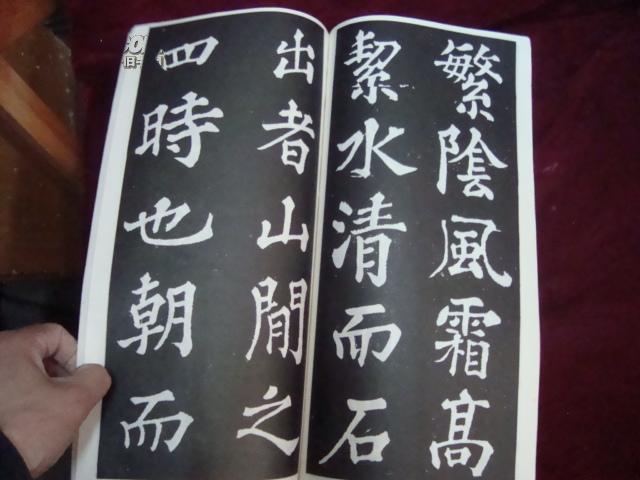 繁陰風霜髙
絜水清而石
出者山閒之
四時也朝而